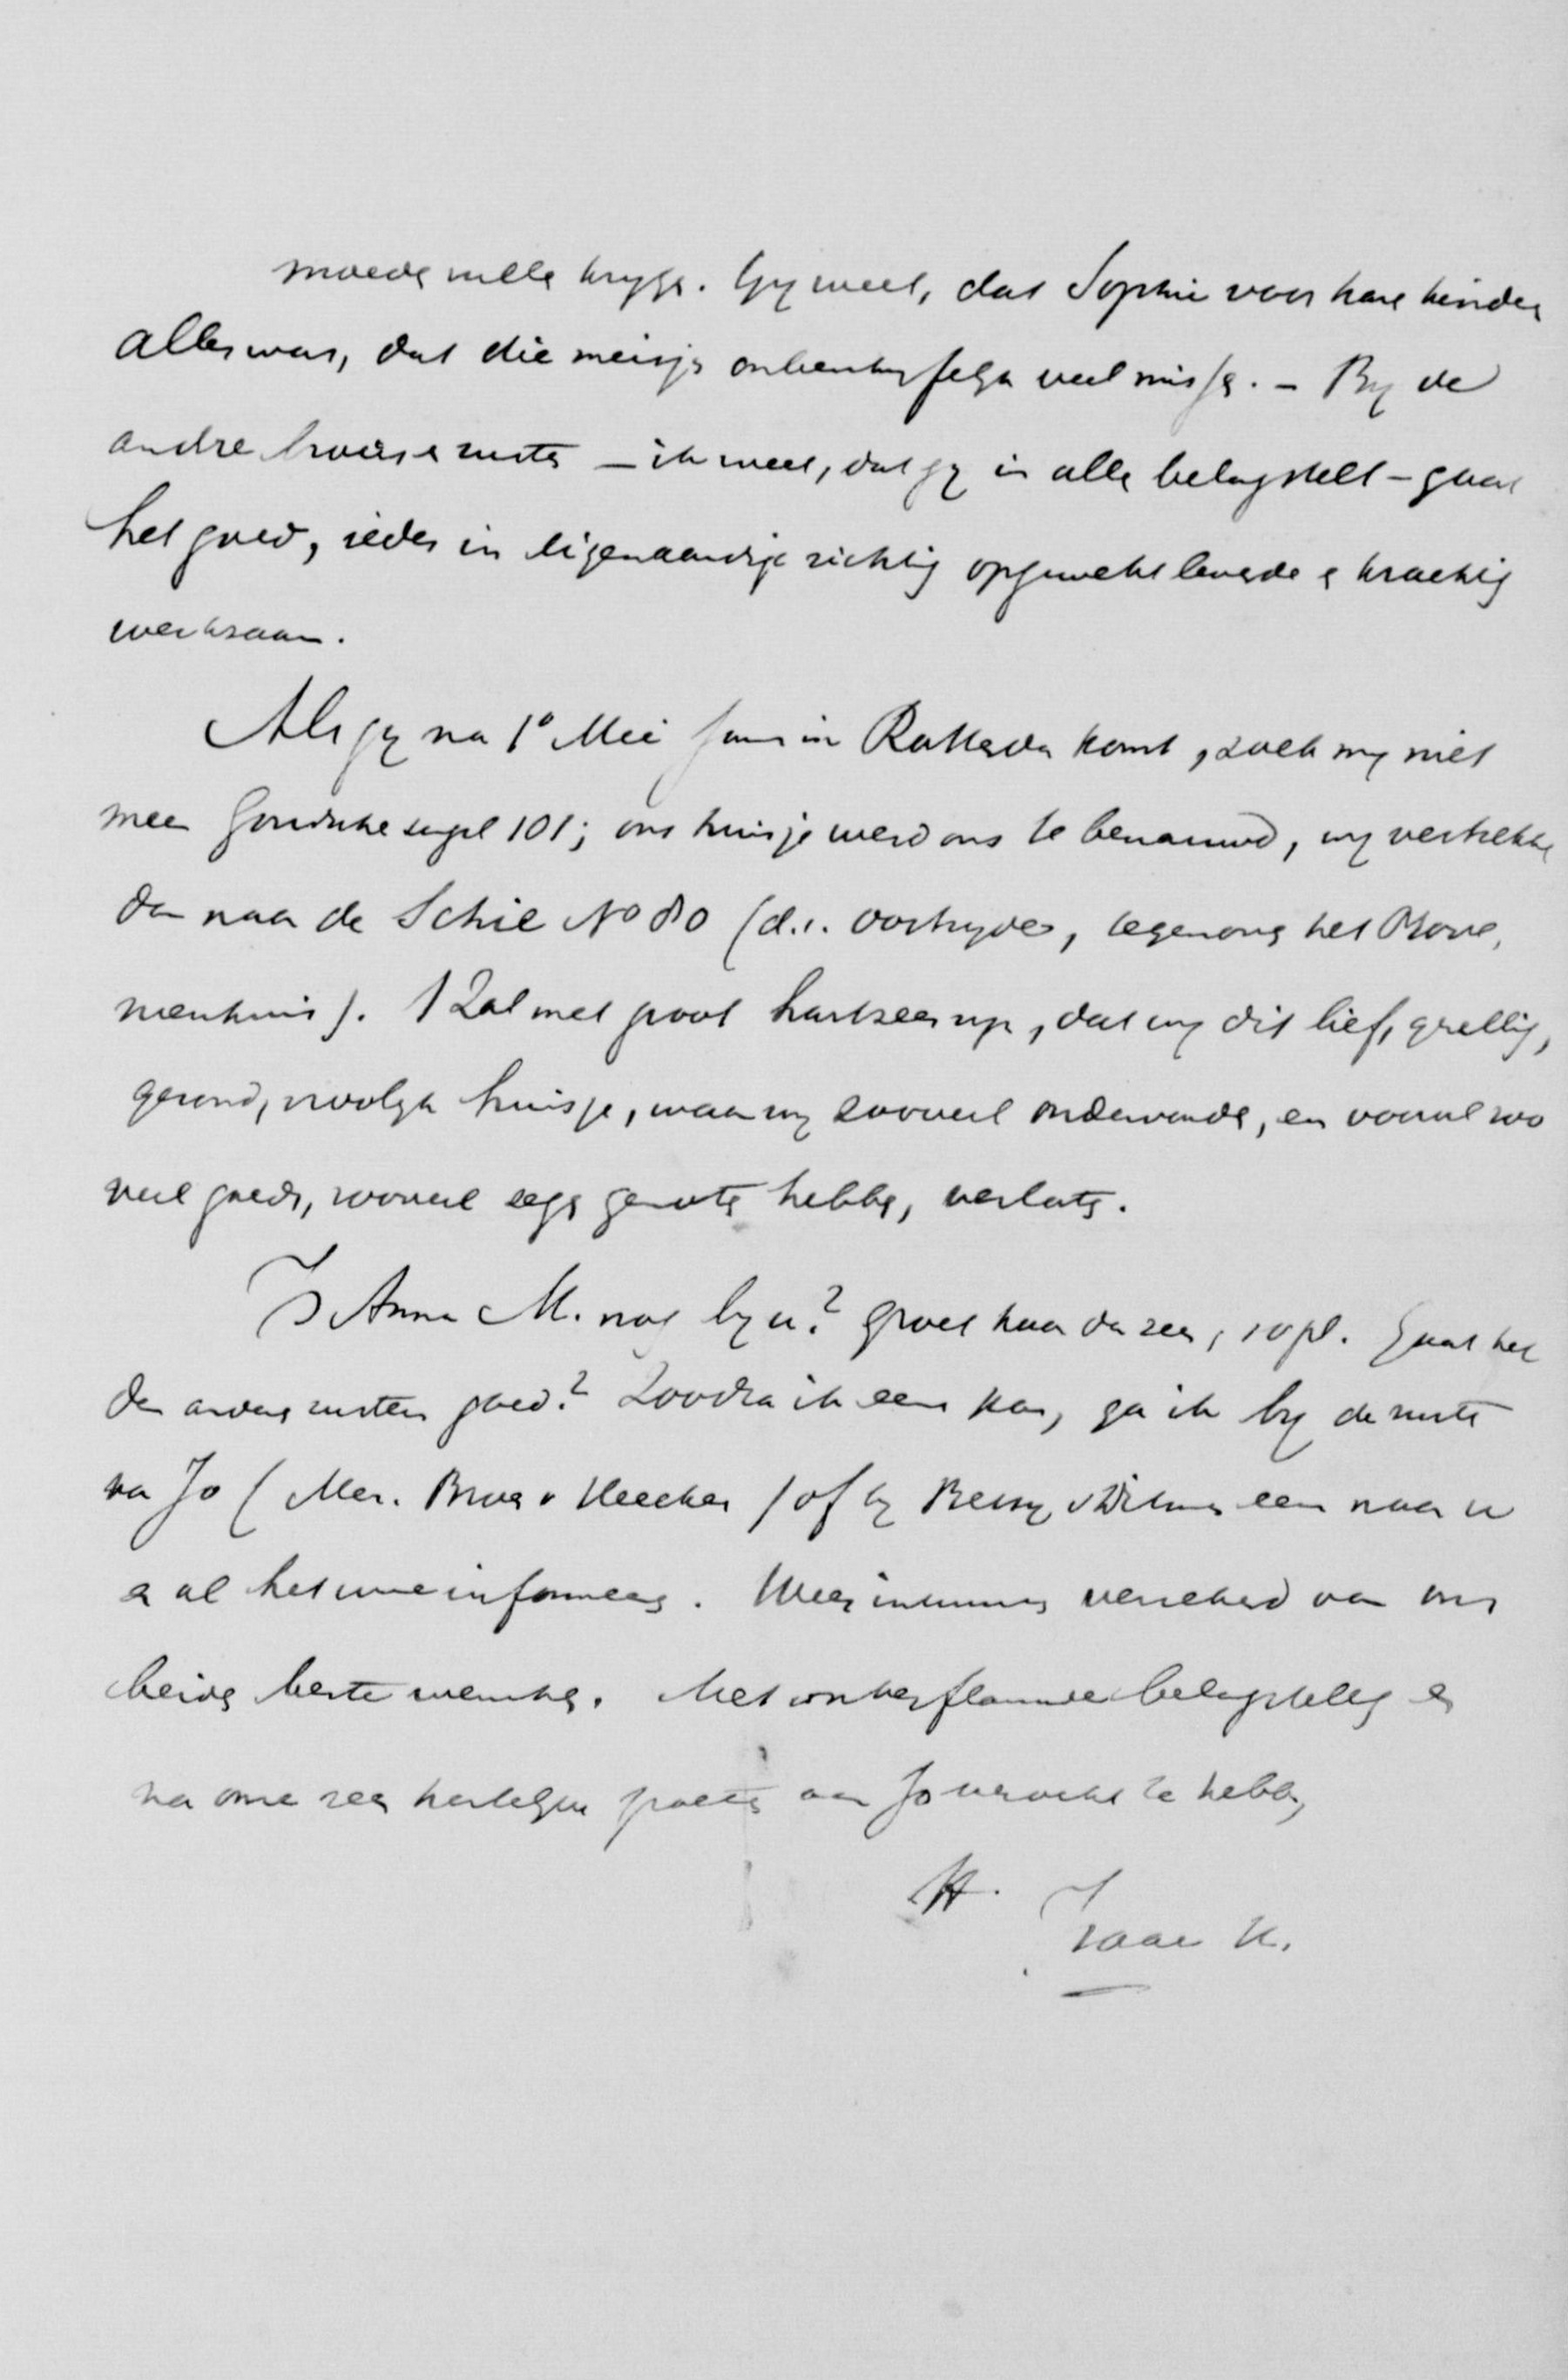 moeder wille krijge. Gij weet, dat Sophie voor hare kinder
alles was, dat die meisjes onbeschrijfelijk veel misse. – Bij de
andre broers e zusters – ik weet, dat gij in alle belangstelt – gaat
het goed, ieder in eigenaardige richting opgewekt levende e krachtig
werkzaam.
Als gij na 1° Mei soms in Rotterda komt, zoek mij niet
meer Goudschesingel 101; ons huisje werd ons te benauwd, wij vertrekke
dan naar de Schie No 80 (d.i. oostzijde, tegenover het
). 't Zal met groot hartzeer zijn, dat wij dit lief, gezellig,
gezond, vroolijk huisje, waar wij zooveel ondervonde, en vooral zoo
veel goeds, zooveel zege genote hebbe, verlate.
Is Anna M. nog bij u? Groet haar dan zeer, s.v.pl. Gaat het
de andere zusters goed? Zoodra ik eens kan, ga ik bij de zuster
van Jo (Mevr. ) of bij Betsy eens naar u
e al het uwe informeere. Wees intussen verzekerd van ons
beider beste wensche. Met onverflauwde belangstelling e
na onze zeer hartelijke groete aan Jo verzocht te hebbe,
tt.
Izaac H.